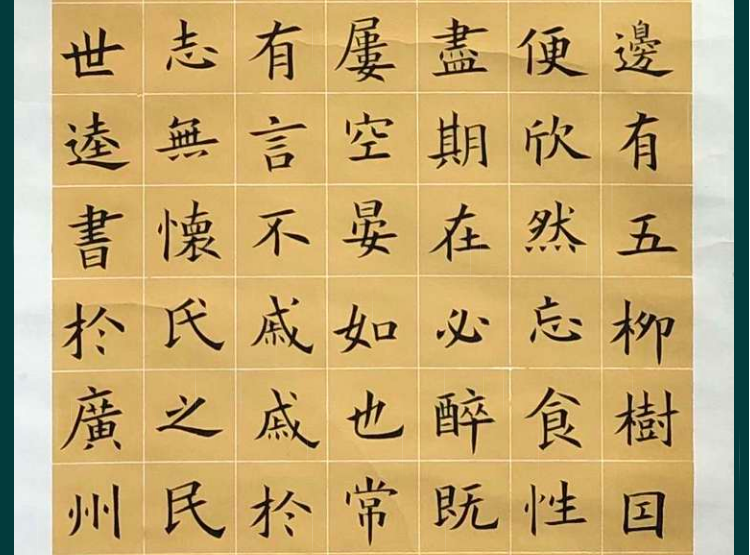 邊有五柳樹囙
便欣然忘食性
盡期在必醉既
屢空晏如也常
有言不戚戚扵
志無懷氏之民
世逵書扵廣州